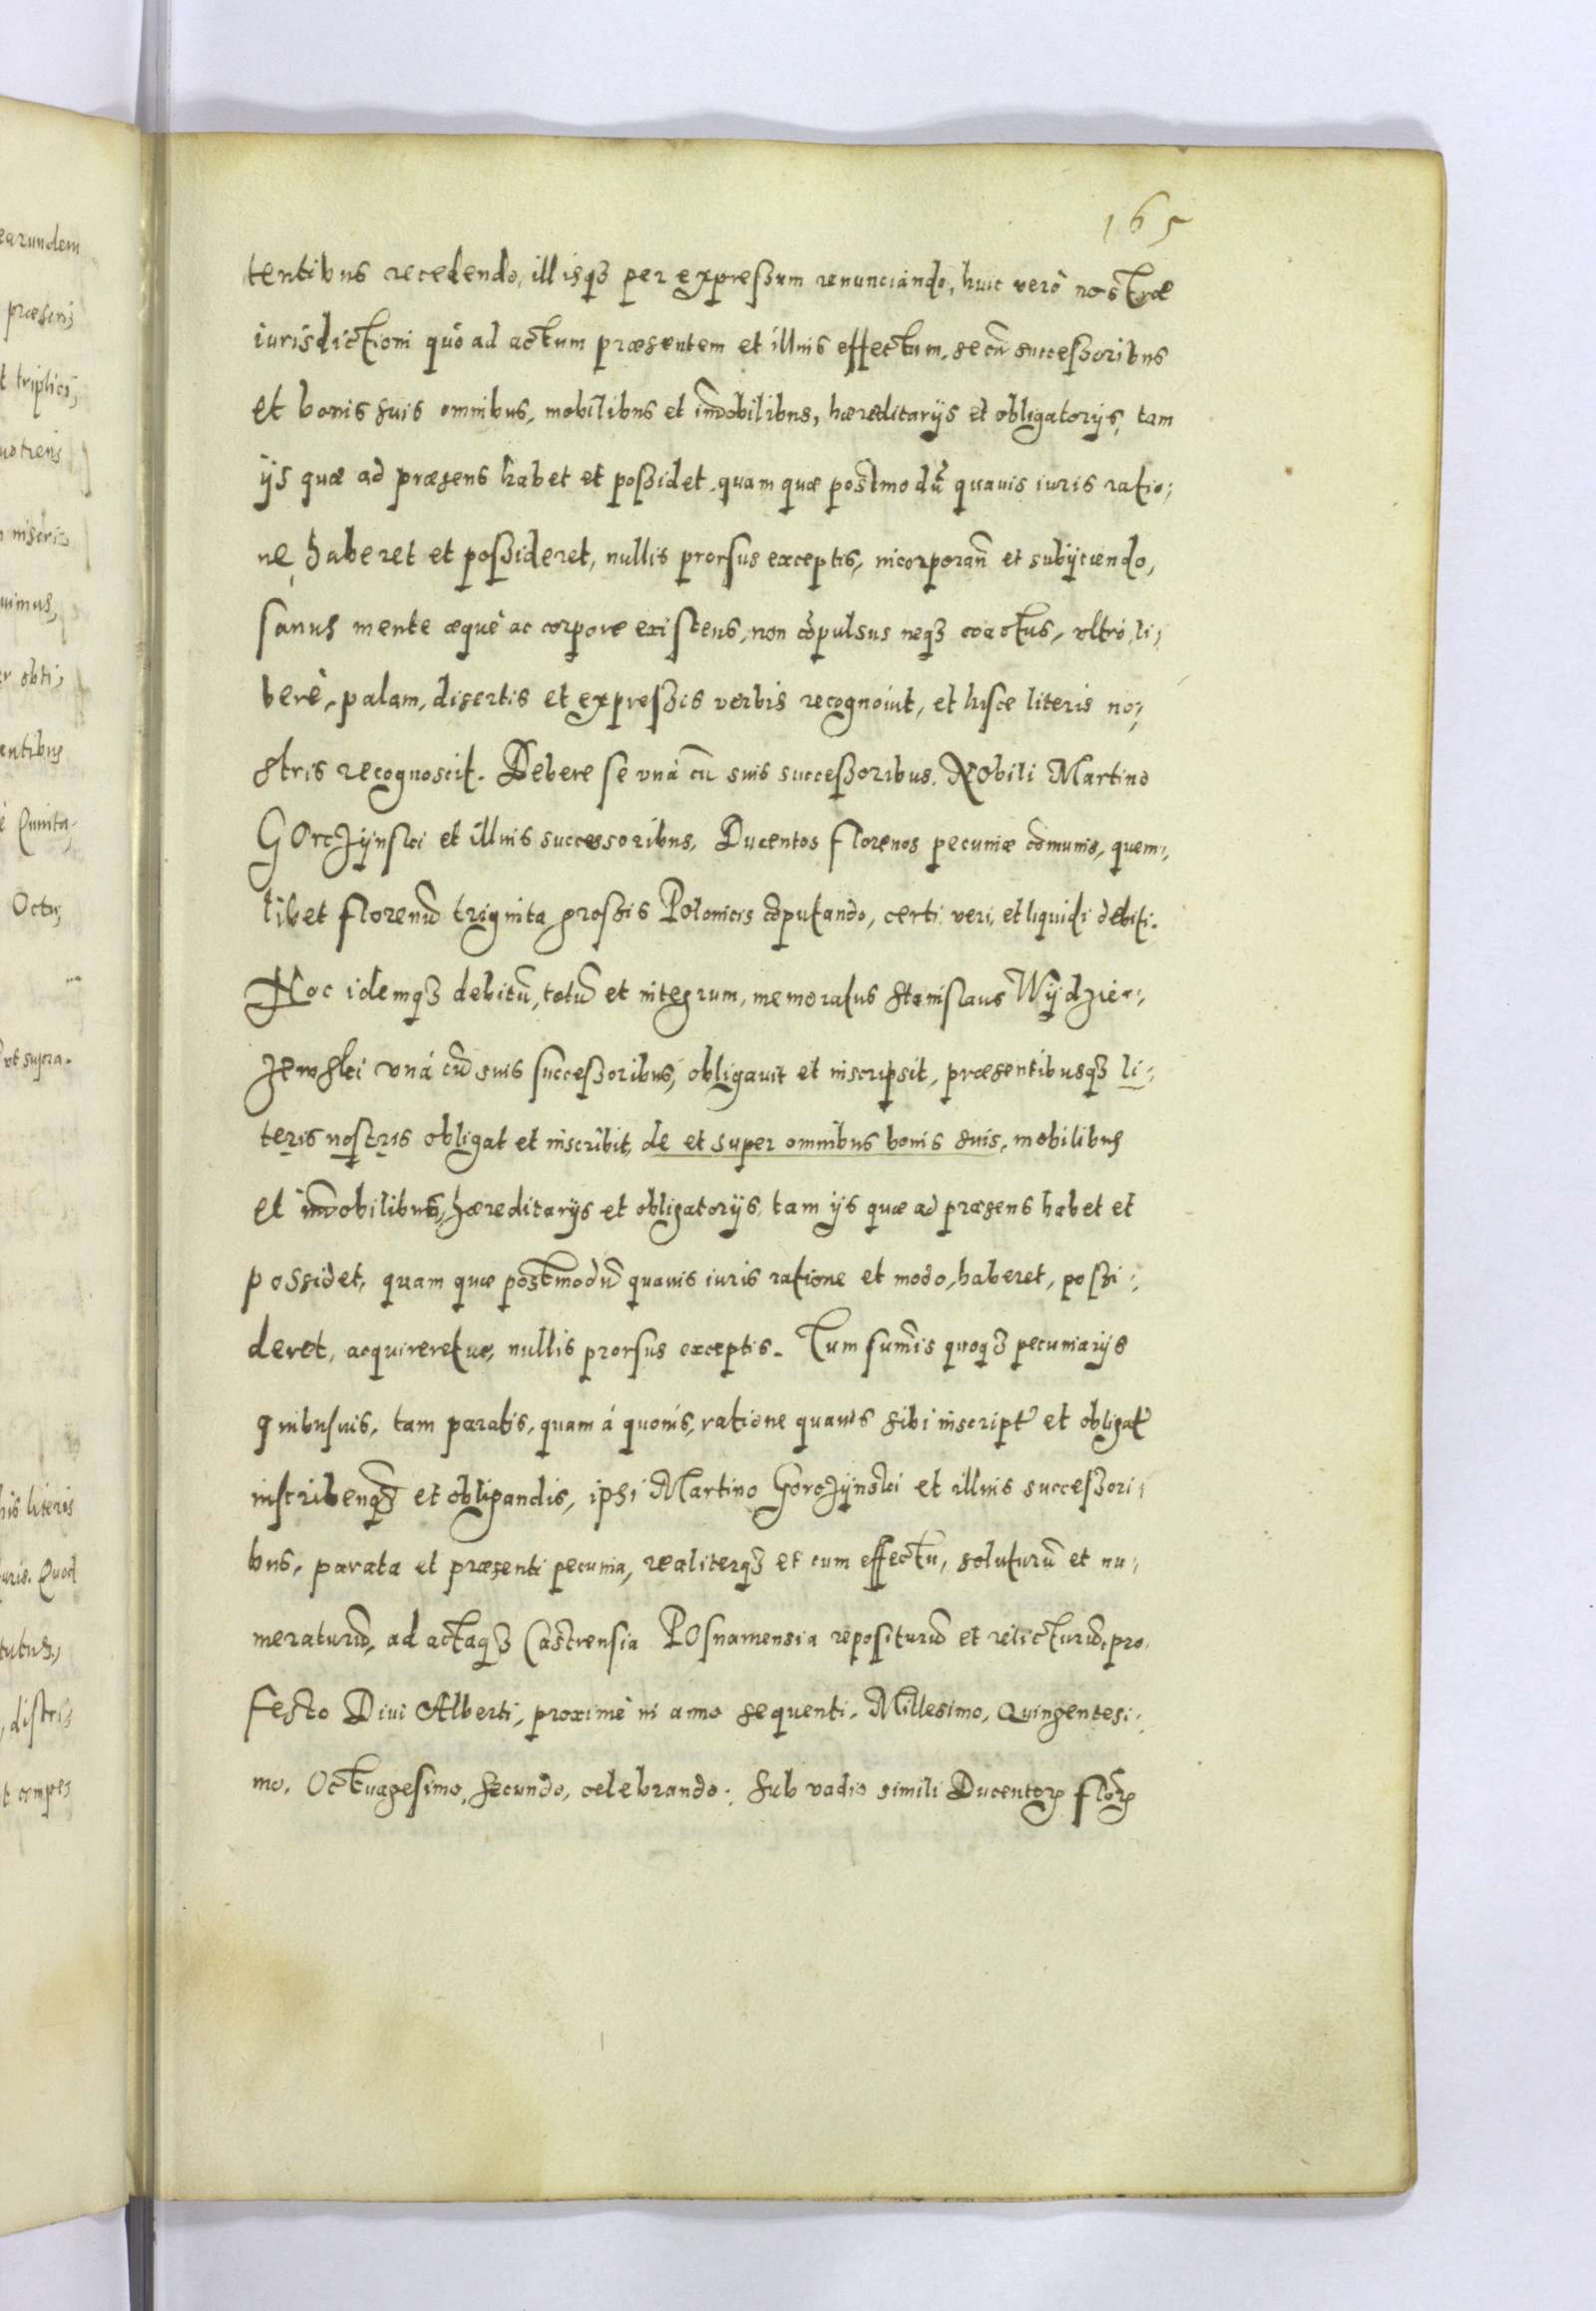 165
tentibus recedendo, illisq3 per expreßum renunciando, huic verò nostræ
iurisdictioni quò ad actum præsentem et illius effectum, se cũ succeßoribus
et bonis suis omnibus, mobilibus et im̃obilibus, hæreditarijs et obligatorijs, tam
ijs quæ ad præsens habet et poßidet, quam quæ postmodũ quauis iuris ratio;
ne haberet et poßideret, nullis prorsus exceptis, incorporañ et subijciendo,
sanus mente æquè ac corpore existens, non cõpulsus neq3 coactus, vltrò, li;
berè, palam, disertis et expreßis verbis recognouit, et hisce literis no;
stris recognoscit. Debere se vnà cũ suis succeßoribus, Nobili Martino
Gorczÿnski et illius successoribus, Ducentos florenos pecuniæ cõmunis, quem;
libet florenũ triginta großis Polonicis cõputando, certi, veri, et liquidi debiti.
Hoc idemq3 debitũ, totũ et integrum, memoratus Stanislaus Wÿdzier;
zewski vnà cũ suis succeßoribus, obligauit et inscripsit, præsentibusq3 li;
teris nostris obligat et inscribit, de et super omnibus bonis suis, mobilibus
et im̃obilibus, hæreditarijs et obligatorijs, tam ijs quæ ad præsens habet et
possidet, quam quæ postmodũ quauis iuris ratione et modo, haberet, poßi;
deret, acquireretue, nullis prorsus exceptis. Tum sum̃is quoq3 pecuniarijs
quibusuis, tam paratis, quam à quouis, ratione quauis sibi inscript' et obligat'
inscribenq3 et obligandis, ipsi Martino Gorczÿnski et illius succeßori;
bus, parata et præsenti pecunia, realiterq3 et cum effectu, soluturũ et nu;
meraturũ, ad actaq3 Castrensia Posnamensia repositurũ et relicturũ, pro
festo Diui Alberti, proximè in anno sequenti, Millesimo, Quingentesi;
mo, Octuagesimo, Secundo, celebrando. Sub vadio simili Ducentorꝝ florꝝ
earundem
t triplici;
Octu;
vt supra.
his literis
uris. Quod